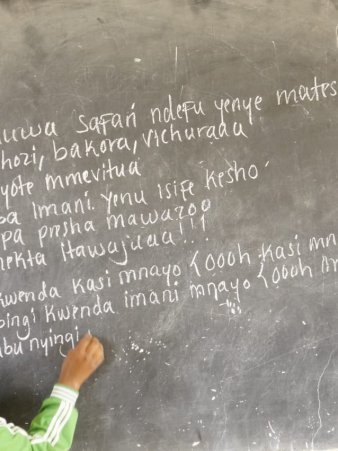 safari ndefu yenye mates
hozi, bakora, vichurada
yote mmevitua
ba imani yenu isife kesho
pa presha mawazoo
nekta itawajuaa!!!
kwenda kasi mnayo (ooooh kasi mn
bingi kwenda imani mnayo (ooooh
bu nyingi